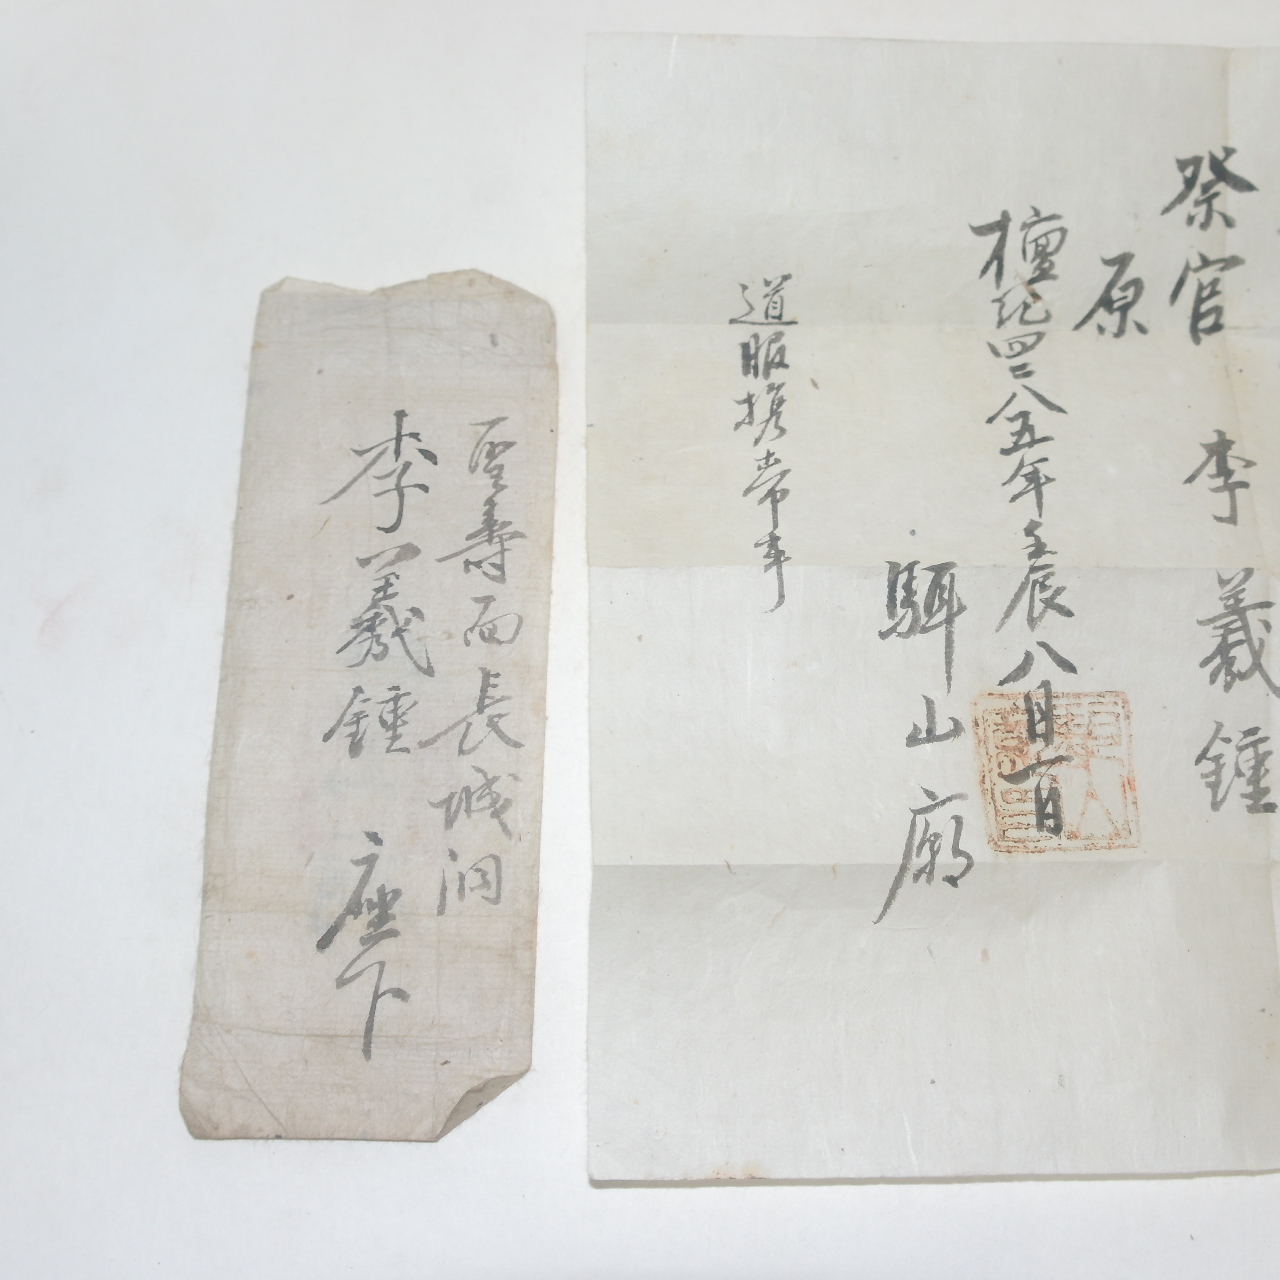 祭官 李義鍾
原
檀紀四二八五年壬辰八月一日
駬山廟
道服携帶事
聖壽面長城洞
李義鍾 座下